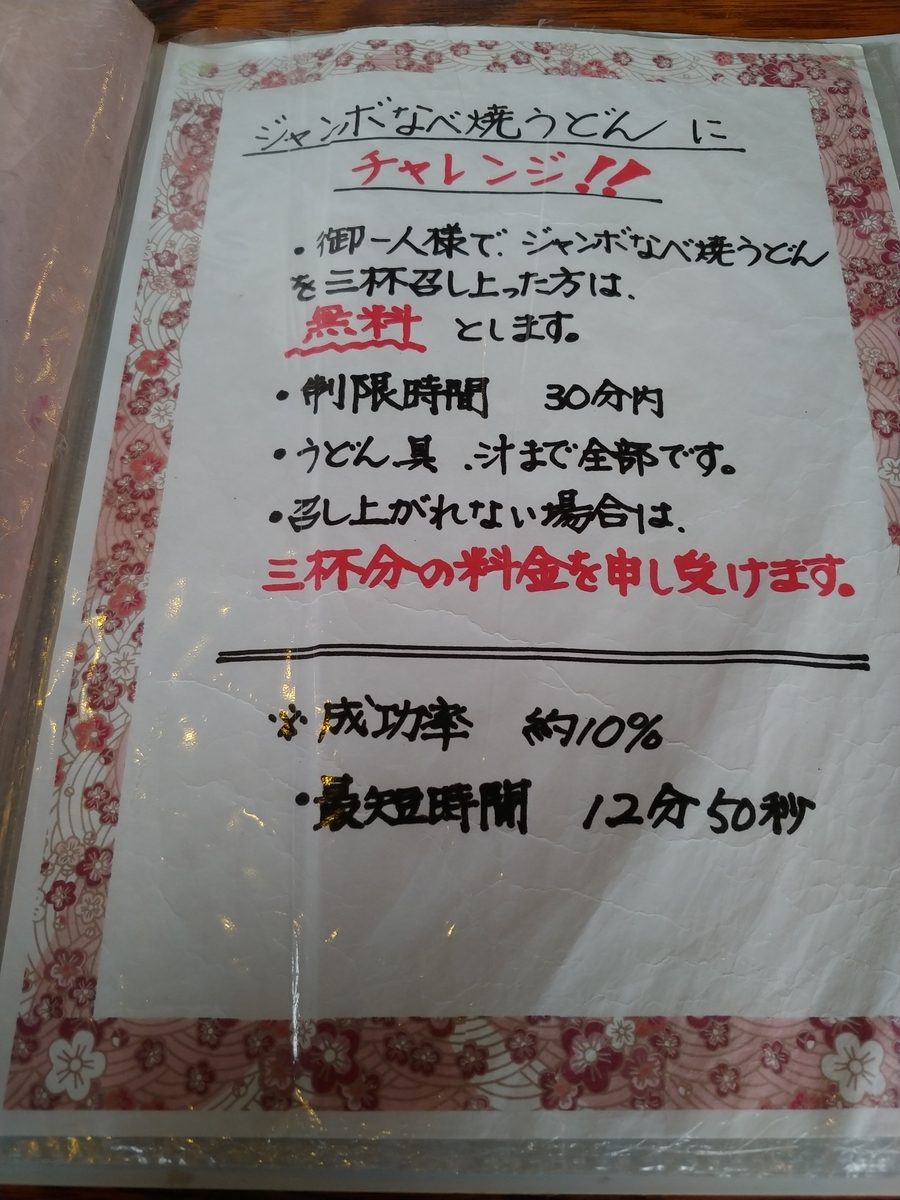 ジャンボなべ焼うどんに
チャレンジ!!
・御一人様で、ジャンボなべ焼うどん
を三杯召し上った方は、
無料 とします。
・制限時間 30分内
・うどん、具、汁まで全部です。
・召し上がれない場合は、
三杯分の料金を申し受けます。
※成功率 約10%
・最短時間 12分50秒